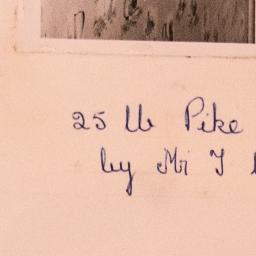 25 lb Pike
by Mr J